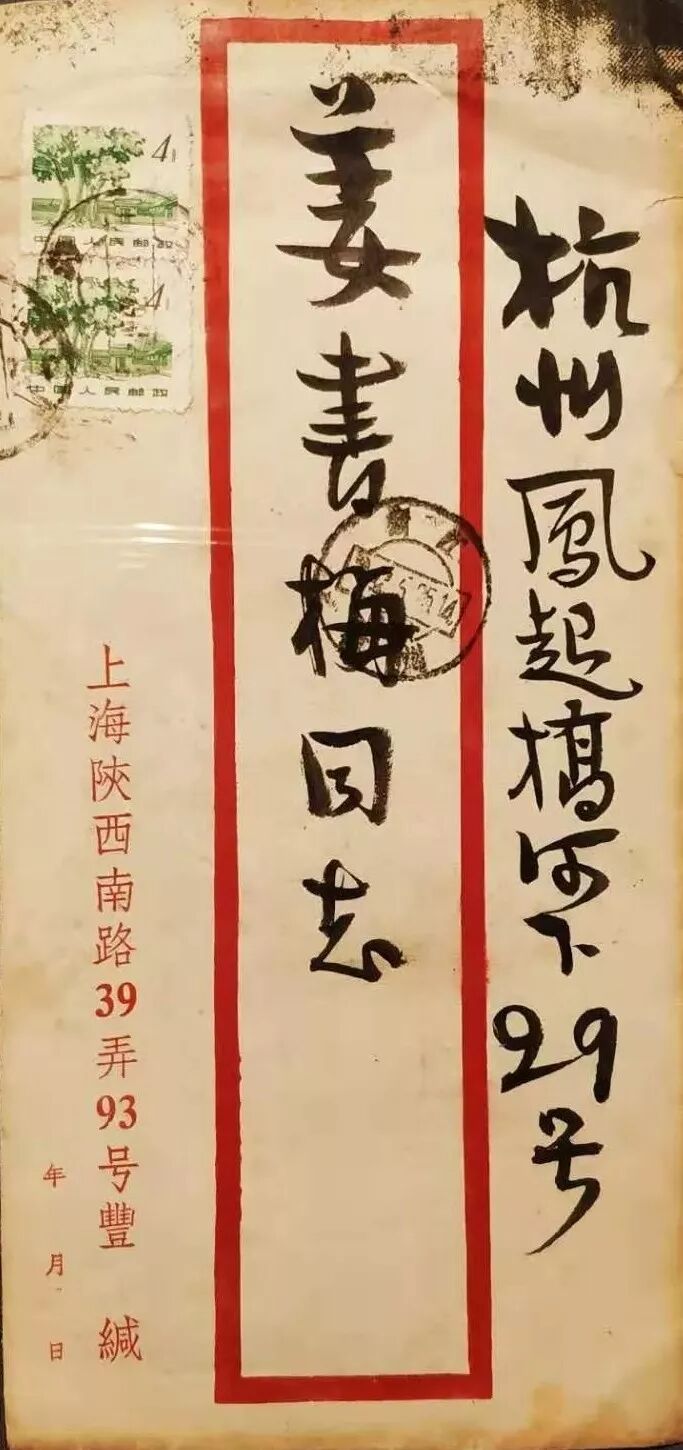 杭州鳳起橋河下29号
姜書梅同志
4分
中国人民邮政
4分
中国人民邮政
上海陝西南路39弄93号豐 緘
年 月 日